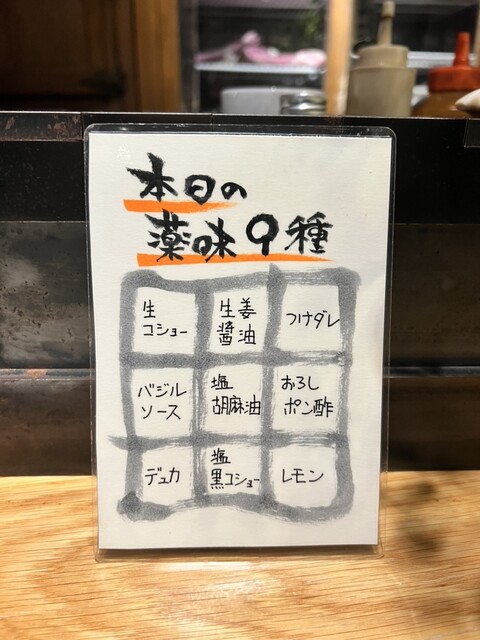 本日の
薬味9種
生
コショー
生姜
醤油
つけダレ
バジル
ソース
塩
胡麻油
おろし
ポン酢
デュカ
塩
黒コショー
レモン